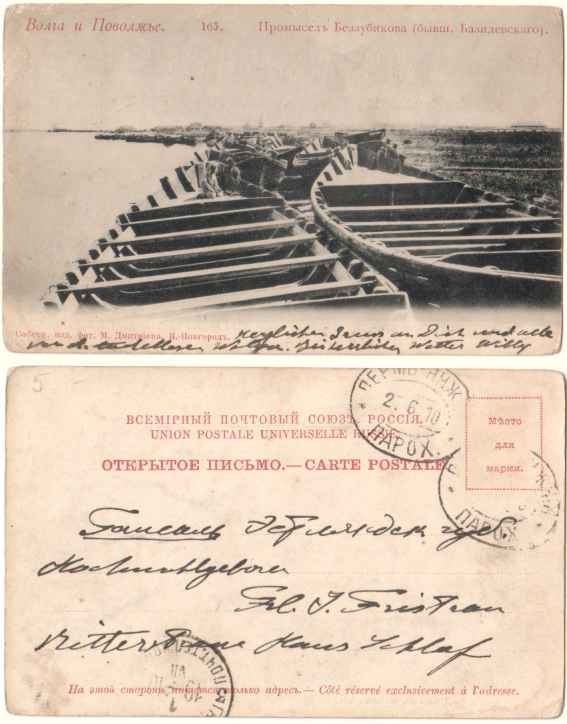 Волга и Поволжье. 165. Промыселъ Беззубикова (бывш. Базилевскаго).
Собств. изд. фот. М. Дмитріева, Н.-Новгородъ.
Herzlichen Gruss an Dich und alle
Wetter Willy
5
ВСЕМІРНЫЙ ПОЧТОВЫЙ СОЮЗЪ. РОССІЯ.
UNION POSTALE UNIVERSELLE
ОТКРЫТОЕ ПИСЬМО.—CARTE POSTALE
Мѣсто
для
марки.
ПЕРМЬ НИЖ
2. 6. 10
ПАРОХ.
ПАРОХ
Гапсаль Эстляндск губ.
Hochwohlgeboren
Frl. J.
Haus Schlaf
На этой сторонѣ пишется только адресъ.— Côté réservé exclusivement à l'adresse.